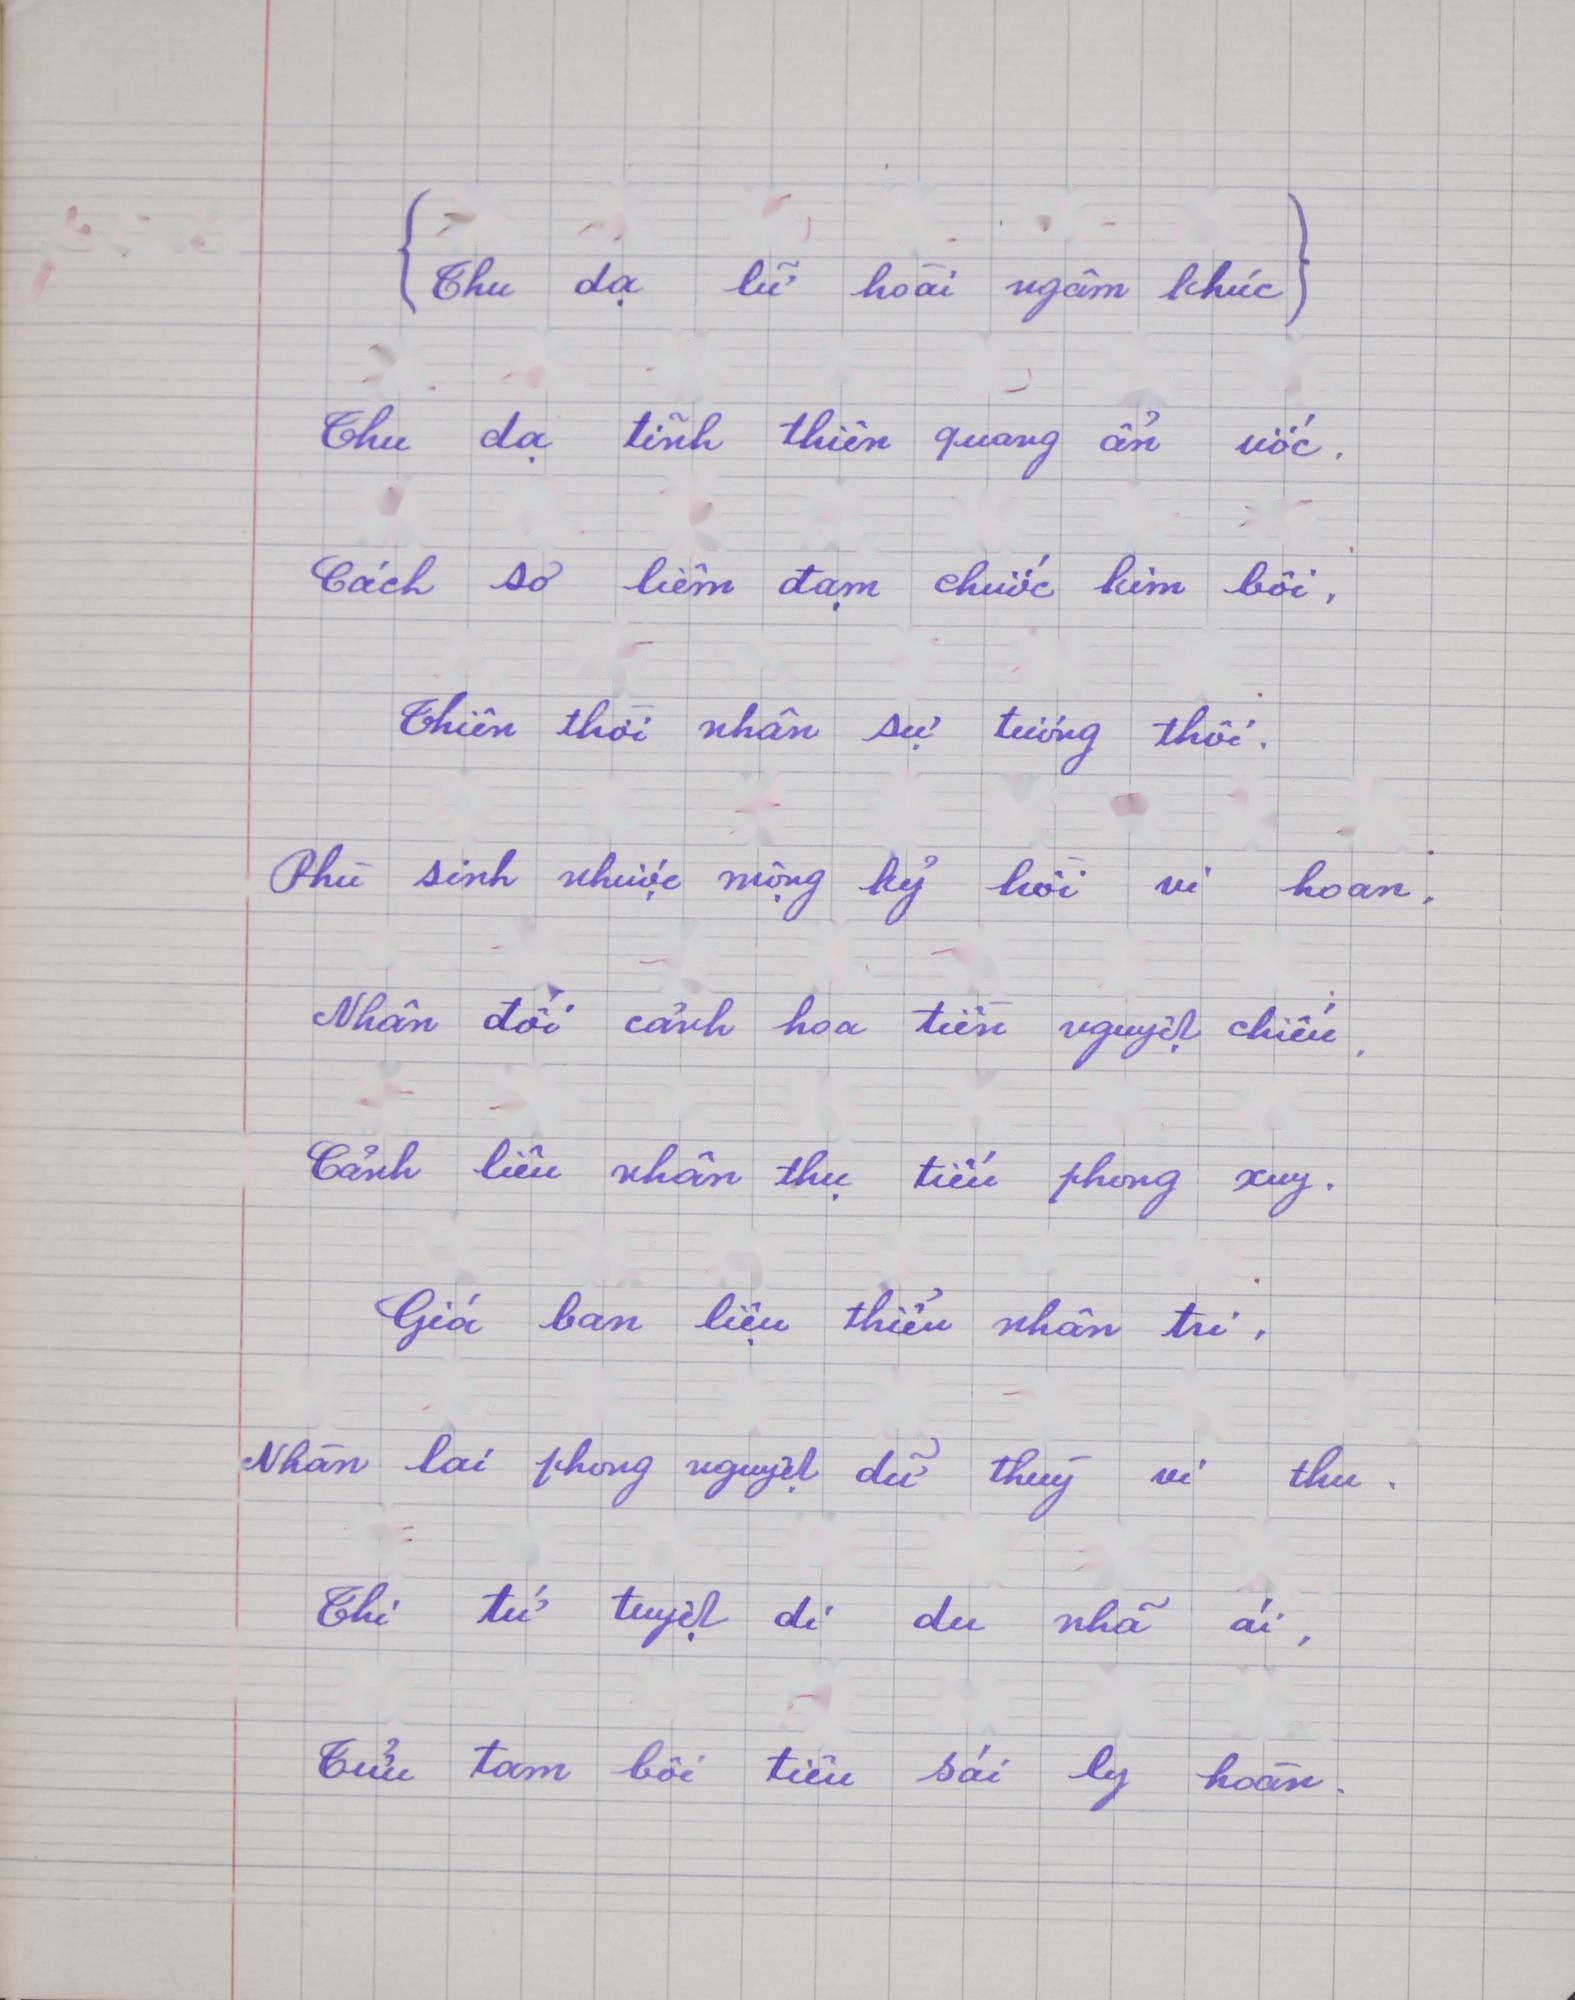 {Thu dạ lữ hoài ngâm khúc}
Thu dạ tĩnh thiên quang ẩn ước.
Cách sơ liêm đạm chước kim bôi,
Thiên thời nhân sự tương thôi.
Phù sinh nhược mộng kỷ hồi vi hoan,
Nhân đối cảnh hoa tiền nguyệt chiếu,
Cảnh liêu nhân thụ tiếu phong xuy.
Giá ban liệu thiểu nhân tri,
Nhàn lai phong nguyệt dữ thuỳ vi thu.
Thi tứ tuyệt di du nhã ái,
Tửu tam bôi tiêu sái ly hoàn.